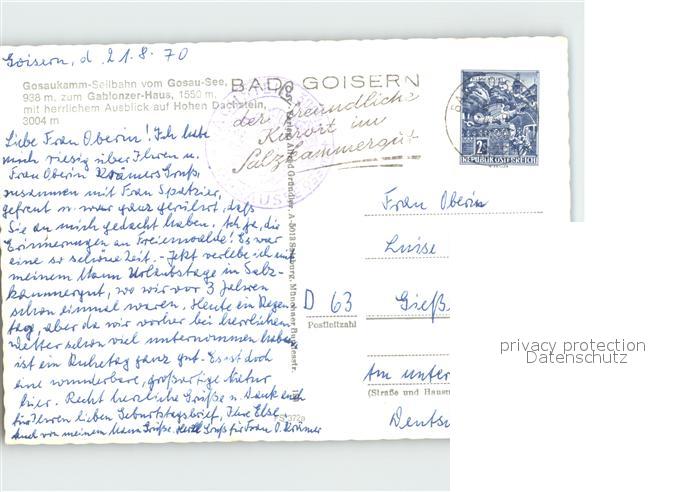 Goisern, d 21.8.70
Gosaukamm-Seilbahn vom Gosau-See,
938 m, zum Gablonzer-Haus, 1550 m,
mit herrlichem Ausblick auf Hohen Dachstein,
3004 m
BAD GOISERN
der freundliche
Kurort im
Salzkammergut
2S
REPUBLIK ÖSTERREICH
Liebe Frau Oberin! Ich habe
mich riesig über Ihren u.
Frau Oberin Krämers Gruß,
zusammen mit Frau Spatzier,
gefreut u. war ganz gerührt, daß
Sie an mich gedacht haben. Ach ja, die
Erinnerungen an Freienwalde! Es war
eine so schöne Zeit. - Jetzt verlebe ich mit
meinem Mann Urlaubstage in Salz-
kammergut, wo wir vor 3 Jahren
schon einmal waren. Heute ein Regen-
tag, aber da wir vorher bei herrlichem
Wetter schon viel unternommen haben,
ist ein Ruhetag ganz gut. Es ist doch
eine wunderbare, großartige Natur
hier. Recht herzliche Grüße u. Dank auch
für Ihren lieben Geburtstagsbrief, Ihre Else
Auch von meinem Mann Grüße. Herzl. Gruß für Frau O. Krämer
Verlag Alfred Gründler, A-5013 Salzburg, Münchner Bundesstr.
Frau Oberin
Luise
D 63 Gieß
Postleitzahl
Am unter
(Straße und Hausnu
Deutsc
privacy protection
Datenschutz